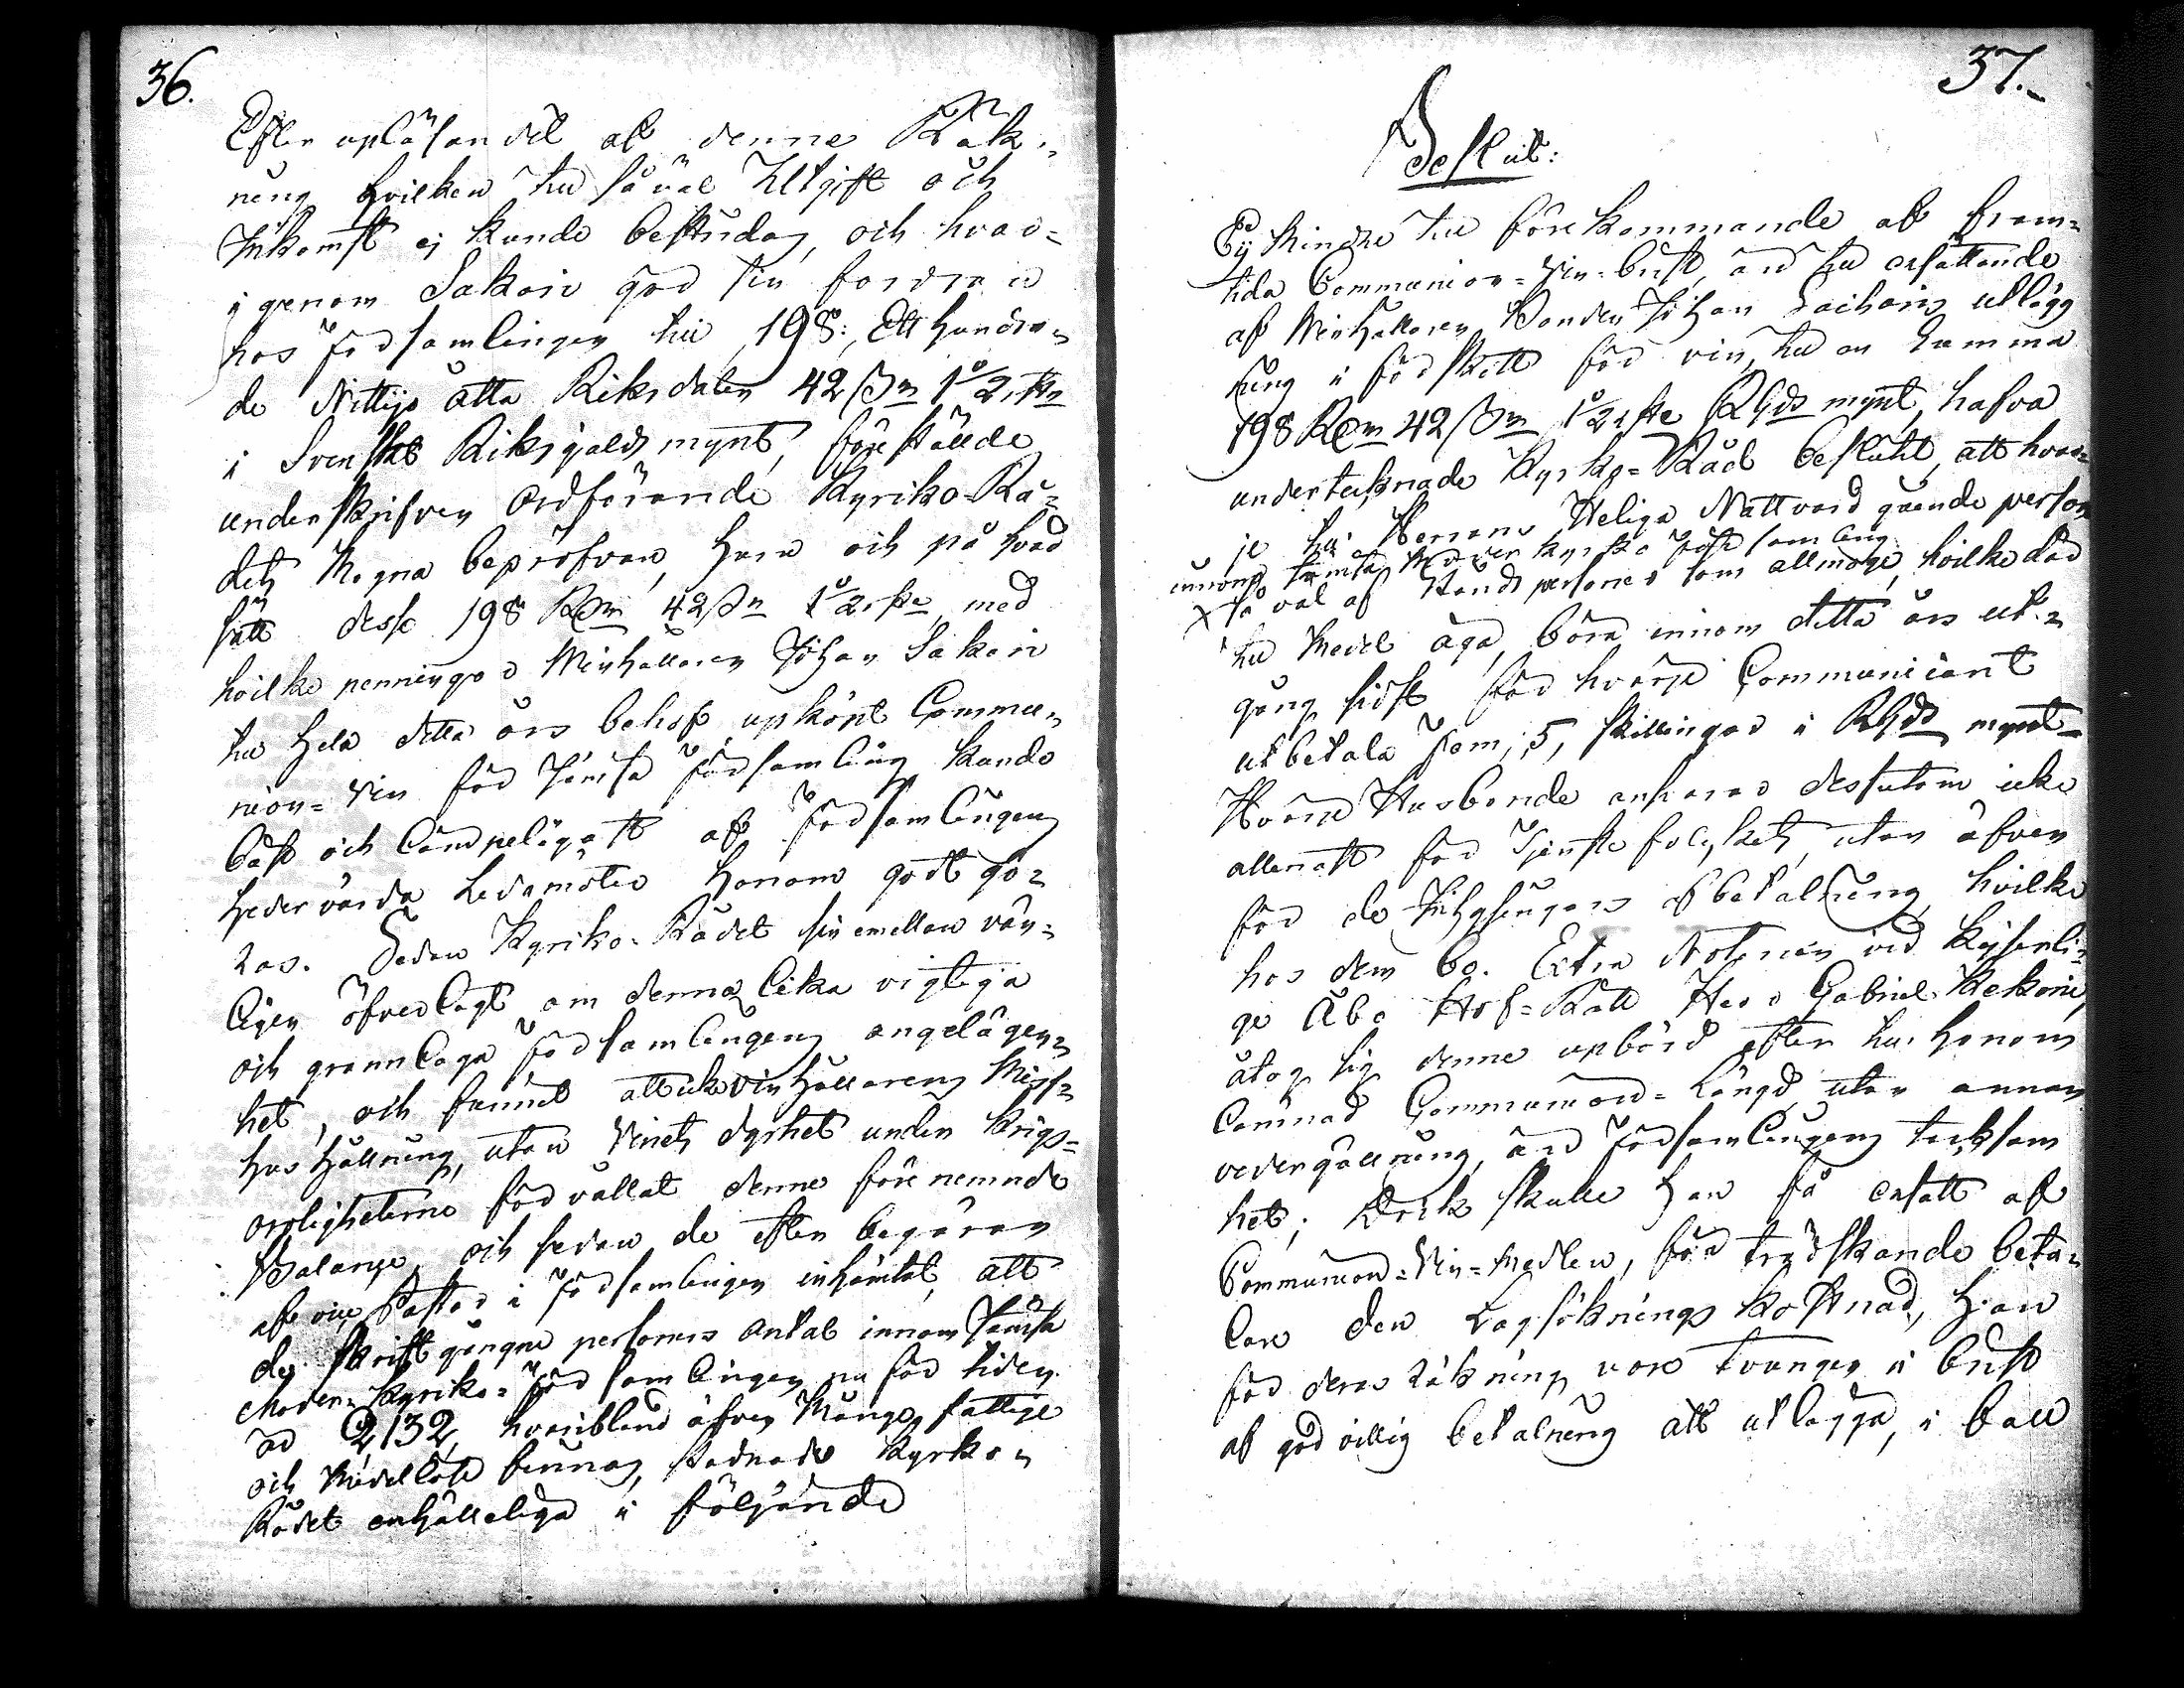 36.
Efter upläsandet af denne Räk-
ning hvilken till såväl Utgift och
Inkomst ej kunde bestridas, och hvar-
igenom Sakari gör sin fordran
hos Församlingen till 198: Ett hundra-
de Nittijo åtta Riksdaler 42 ß 1 1/2 rst
i Svenskt Riksgälds mynt, förestälde
underskrifven Ordförande Kyriko-Rå-
dets Mogna bepröfvan, huru och på hvad
sätt desse 198 RD 42 ß 1 1/2 rst, med
hvilke penningar Winhållaren Johan Sakari
till hela detta års behof upköpt Commu-
nion-Vin för Jämsä Församling kunde
bäst och lindreligast af Församlingens
hedervärda Ledamöter honom godtgö-
ras. Sedan Kyriko-Rådet sin emellan vän-
ligen öfverlagt om denna lika vigtiga
och grannlaga Församlingens angelägen-
het, och funnit att icke Vinhållarens Miss-
hushållning, utan Vinets dyrhet under krigs-
oroligheterne förvållat denne förenemnde
Balance, och sedan de efter begäran
af vice Pastor i Församlingen inhämtat, att
de Skriftgångne personers antal innom Jämsä
Moder-Kyriko-Församlingen nu för tiden
är 2132, hvaribland äfven många fattige
och Medellöse finnas, stadnade Kyrko-
Rådet enhälleliga i följande
37.
Beslut:
Till förekommande af fram-
tida Communion-Vin-brist, och till ersättande
af Winhållaren Bonden Johan Sacharis utlägg
ning i förskott för vin, till en Summa
198 RD 42 ß 1 1/2 rst RGds mynt, hafva
undertecknade Kyrko-Råd beslutit, att hvar-
je till Herrans Heliga Nattvard gående person
innom Jämsä Moder Kyrko Församling
x så väl af Stånds personer som allmoge, hvilke där
till Medel äga, böra innom detta års ut-
gång sidst för hvarje Communicant
utbetala Fem, 5, skillingar i RGds mynt
Hvarje Husbonde ansvarar dessutom icke
allenast för Tjenstefolkets, utan äfven
för de Inhysingars betalning, hvilke
hos dem bo. Extra Notarien vid Kejserli-
ge Åbo Hof-Rätt Herr Gabriel Kekoni,
åtog sig denne upbörd efter till honom
lämnad Communion-Längd utan annan
vedergällning, än Församlingens tacksam
het; Dock skulle han få ersatt af
Communion-Vin-Medlen, för trädskande beta-
lare den Lagsöknings kostnad, han
för deras räkning vore tvungen i brist
af godvillig betalning att utlägga, i fall